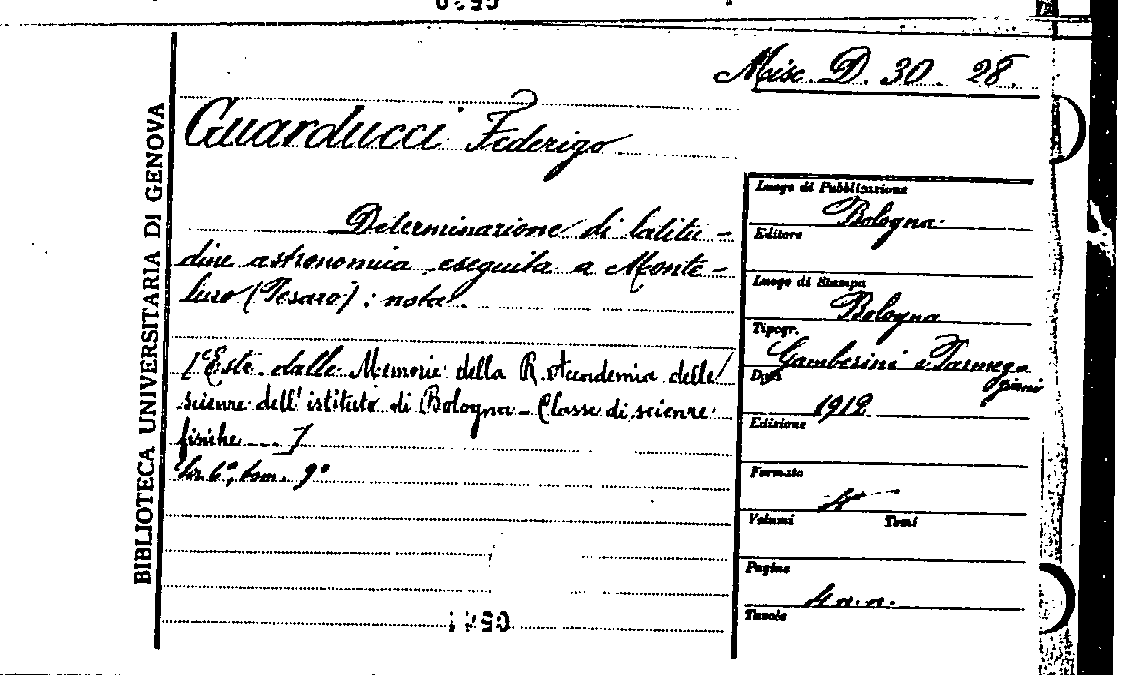 Misc. D. 30. 28.
BIBLIOTECA UNIVERSITARIA DI GENOVA
Guarducci Federigo
Determinazione di latitu-
dine astronomica eseguita a Monte-
luro (Pesaro): nota.
[Estr. dalle Memorie della R. Accademia delle
scienze dell'istituto di Bologna - Classe di scienze
fisiche ...]
Ser. 6ª, tom. 9º
Luogo di Pubblicazione
Bologna
Editore
Luogo di Stampa
Bologna
Tipogr.
Gamberini e Parmeg
giani
Data
1912
Edizione
Formato
4°
Volumi Tomi
Pagine
4 n. n.
Tavole